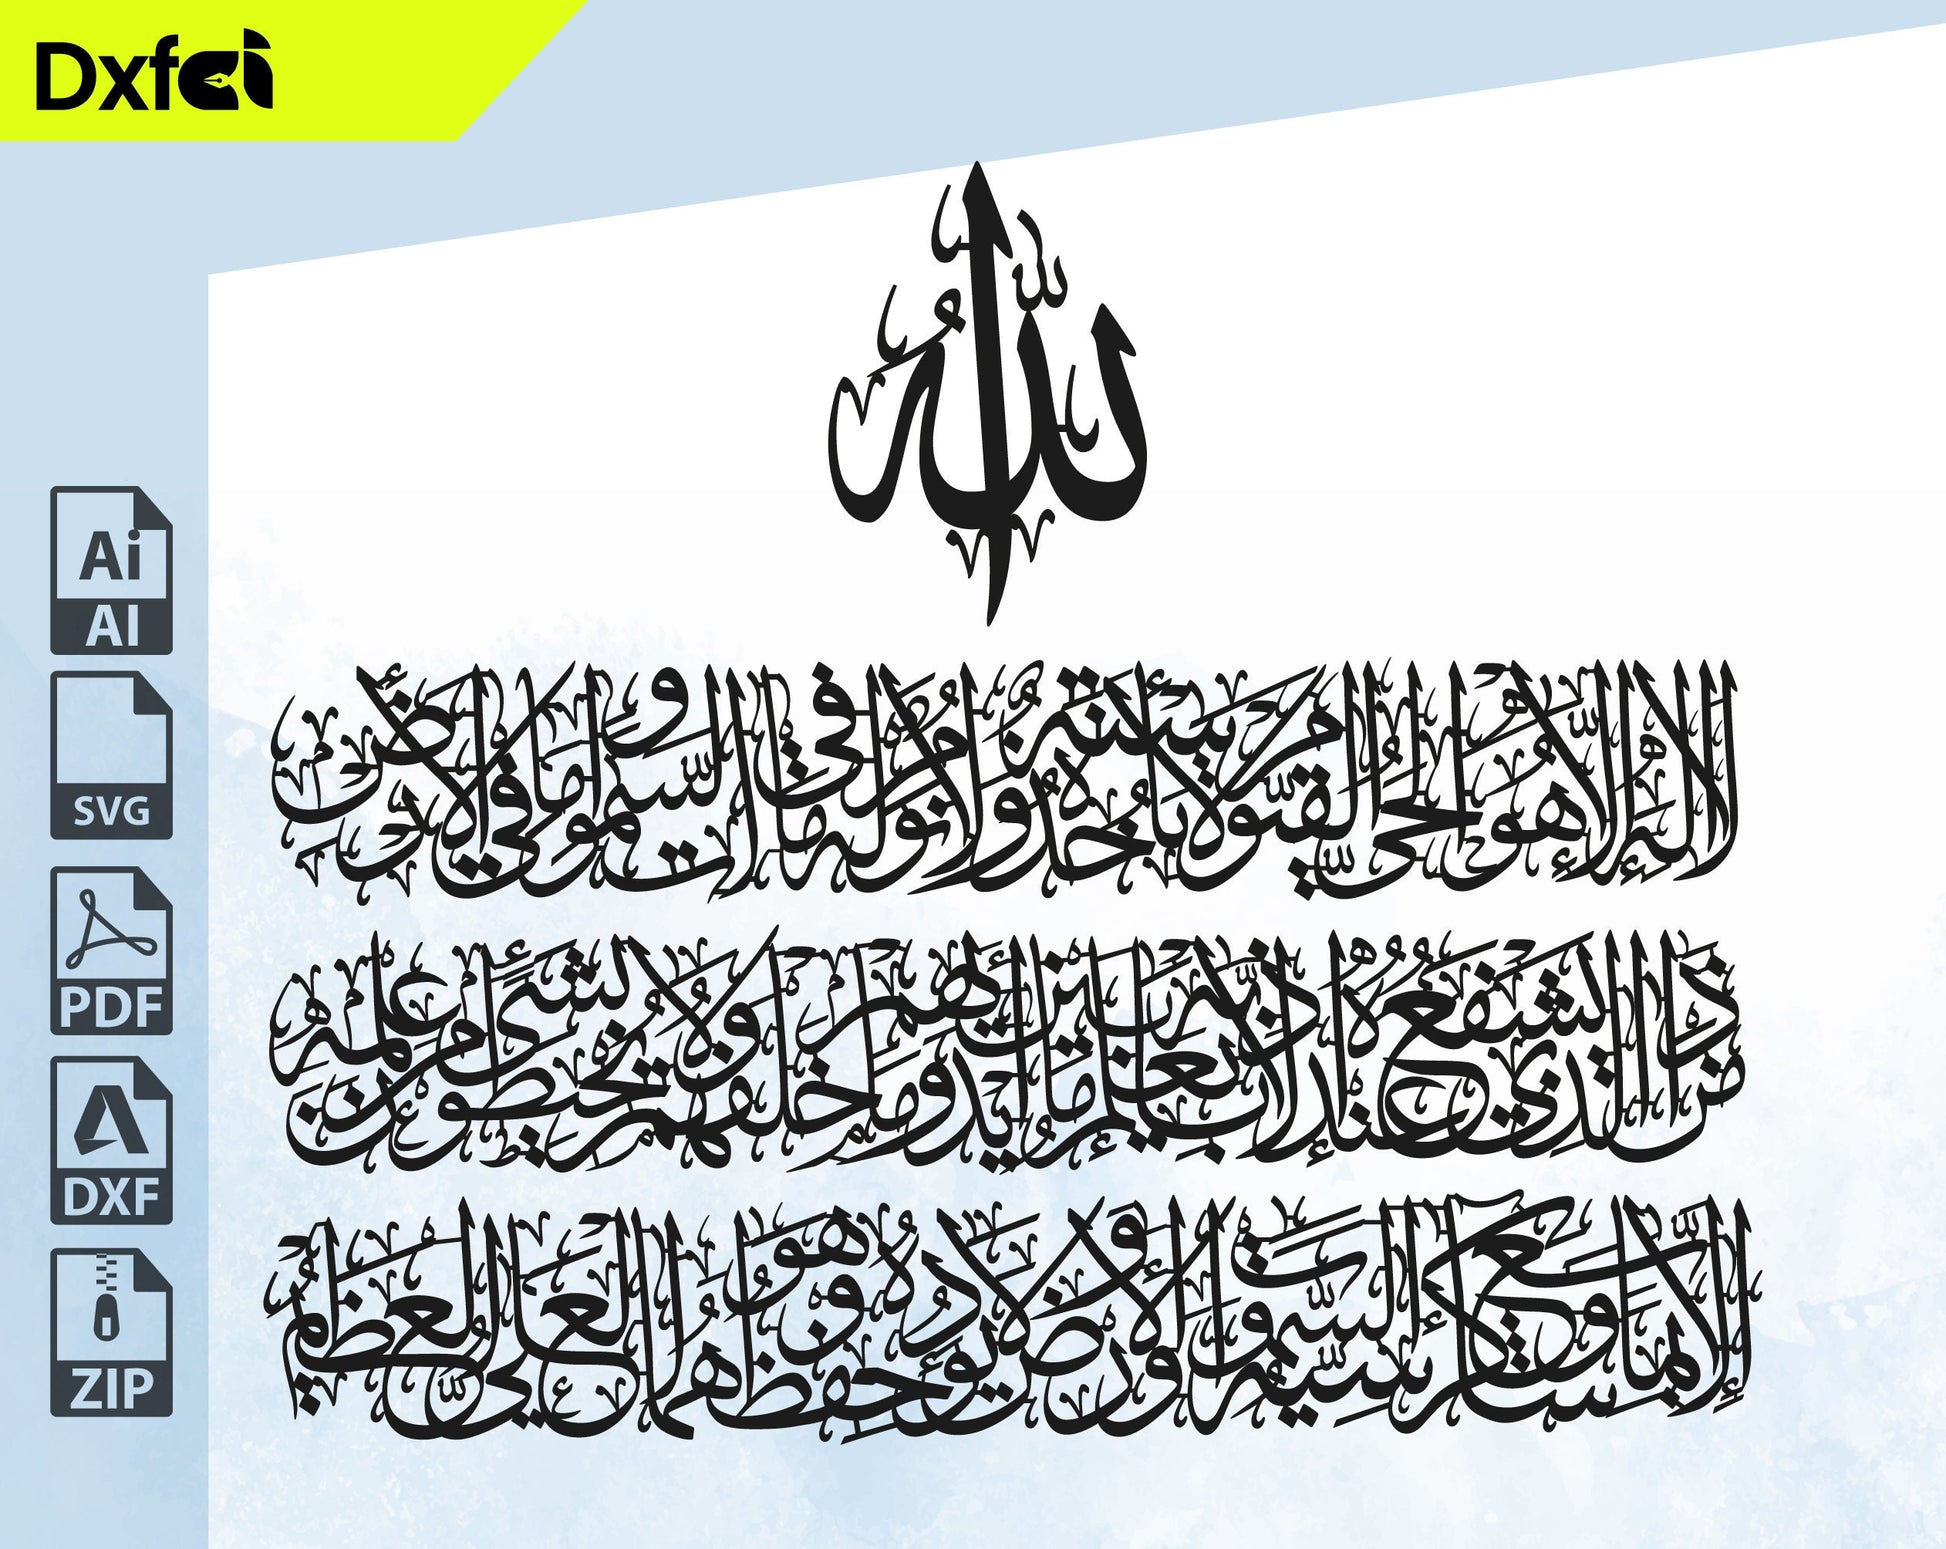 Dxfai
الله
لا إله إلا هو الحي القيوم لا تأخذه سنة ولا نوم له ما في السموات وما في الأرض
من ذا الذي يشفع عنده إلا بإذنه يعلم ما بين أيديهم وما خلفهم ولا يحيطون بشيء من علمه
إلا بما شاء وسع كرسيه السموات والأرض ولا يئوده حفظهما وهو العلي العظيم
Ai
AI
SVG
PDF
DXF
ZIP